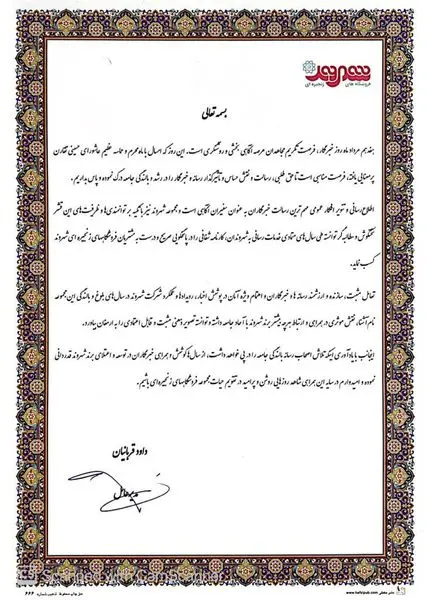 شهروند
فروشگاه های زنجیره ای
بسمه تعالی
هفدهم مرداد ماه روز خبرنگار، فرصت تکریم مجاهدان عرصه آگاهی بخشی و روشنگری است. این روز که امسال با ماه محرم و حماسه عظیم عاشورای حسینی تقارن
پرمعنایی یافته، فرصت مناسبی است تا حق طلبی، رسالت و نقش حساس و تأثیرگذار رسانه و خبرنگار را در رشد و بالندگی جامعه درک نموده و پاس بداریم.
اطلاع رسانی و تنویر افکار عمومی مهم ترین رسالت خبرنگاران به عنوان سفیران آگاهی است و مجموعه شهروند نیز با تکیه بر توانمندی ها و ظرفیت های این قشر
کنشگوش و مطالبه گر توانسته طی سال های متمادی خدمات رسانی به شهروندان، کارنامه شفافی را در پاسخگویی صریح و درست به مشتریان فروشگاههای زنجیره ای شهروند
کسب نماید.
تعامل مثبت، سازنده و ارزشمند رسانه ها و خبرنگاران و اهتمام ویژه آنان در پوشش اخبار، رویدادها و عملکرد شرکت شهروند در سال های بلوغ و بالندگی این مجموعه
نام آشنا، نقش موثری در همراهی و ارتباط هرچه بیشتر برند شهروند با آحاد جامعه داشته و توانسته تصویر ذهنی مثبت و قابل اعتمادی را به ارمغان بیاورد.
اینجانب با یادآوری اینکه تلاش اصحاب رسانه بالندگی جامعه را در پی خواهد داشت، از سال ها کوشش و همراهی خبرنگاران در توسعه و اعتلای برند شهروند قدردانی
نموده و امیدوارم در سایه این همراهی شاهد روزهایی روشن و پرامید در تقویم حیات مجموعه فروشگاههای زنجیره ای باشیم.
داود قربانیان
مدیرعامل
www.hafizpub.com